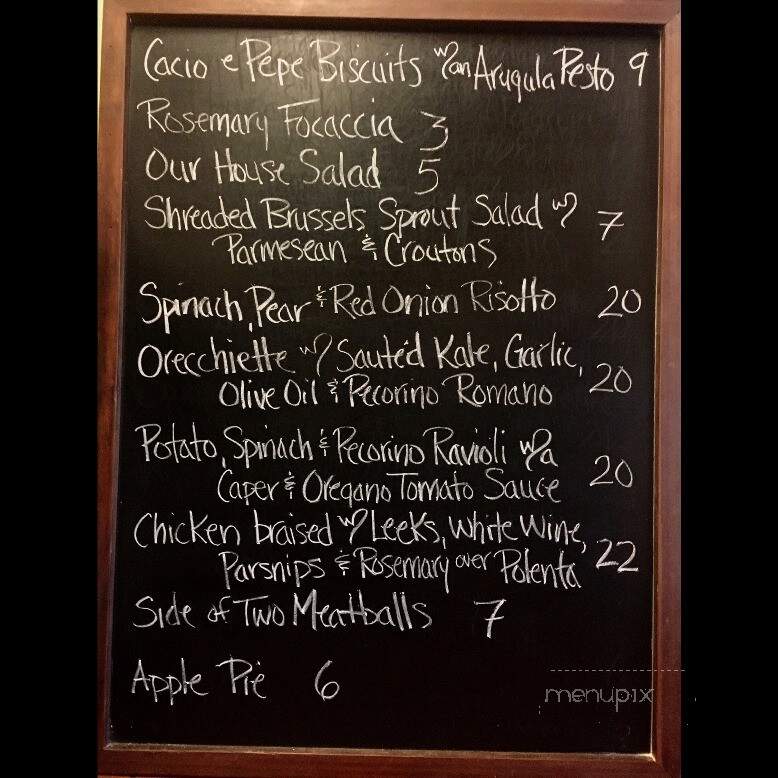 Cacio e Pepe Biscuits w/ an Arugula Pesto 9
Rosemary Focaccia 3
Our House Salad 5
Shreaded Brussels Sprout Salad w/ 7
Parmesean & Croutons
Spinach, Pear & Red Onion Risotto 20
Orecchiette w/ Sautéd Kale, Garlic,
Olive Oil & Pecorino Romano 20
Potato, Spinach & Pecorino Ravioli w/ a
Caper & Oregano Tomato Sauce 20
Chicken braised w/ Leeks, White Wine,
Parsnips & Rosemary over Polenta 22
Side of Two Meatballs 7
Apple Pie 6
menupix